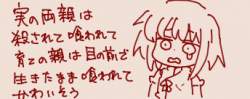 実の両親は
殺されて喰われて
育ての親は目の前で
生きたまま喰われて
かわいそう